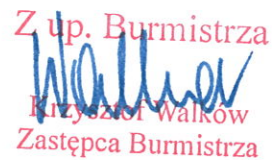 Z up. Burmistrza
Krzysztof Walków
Zastępca Burmistrza